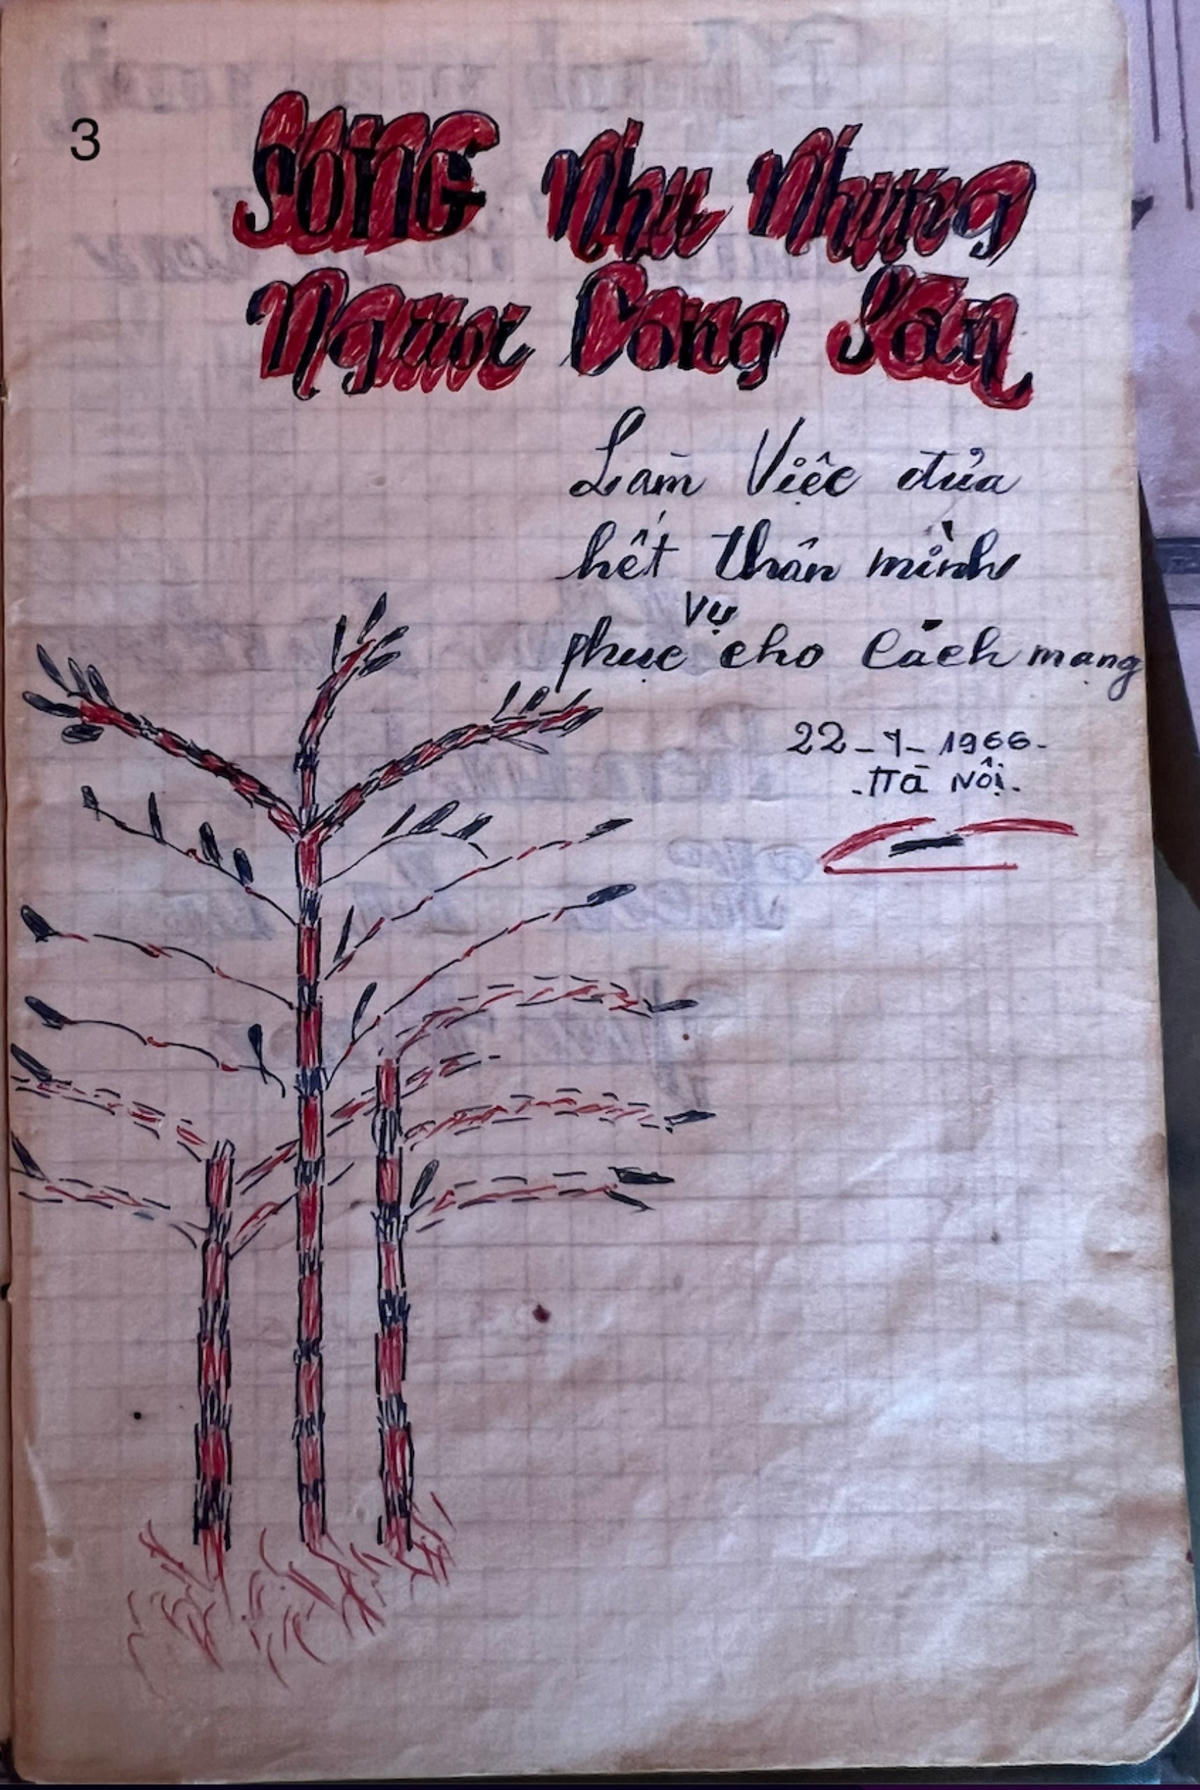 3
SỐNG Như Những
Người Cộng Sản
Làm Việc đủa
hết thân mình
phục vụ cho Cách mạng
22-7-1966-
-Hà Nội.